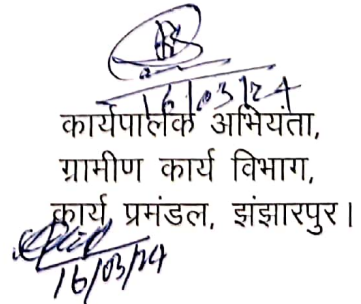 16/03/24
कार्यपालक अभियंता,
ग्रामीण कार्य विभाग,
कार्य प्रमंडल, झंझारपुर।
16/03/24